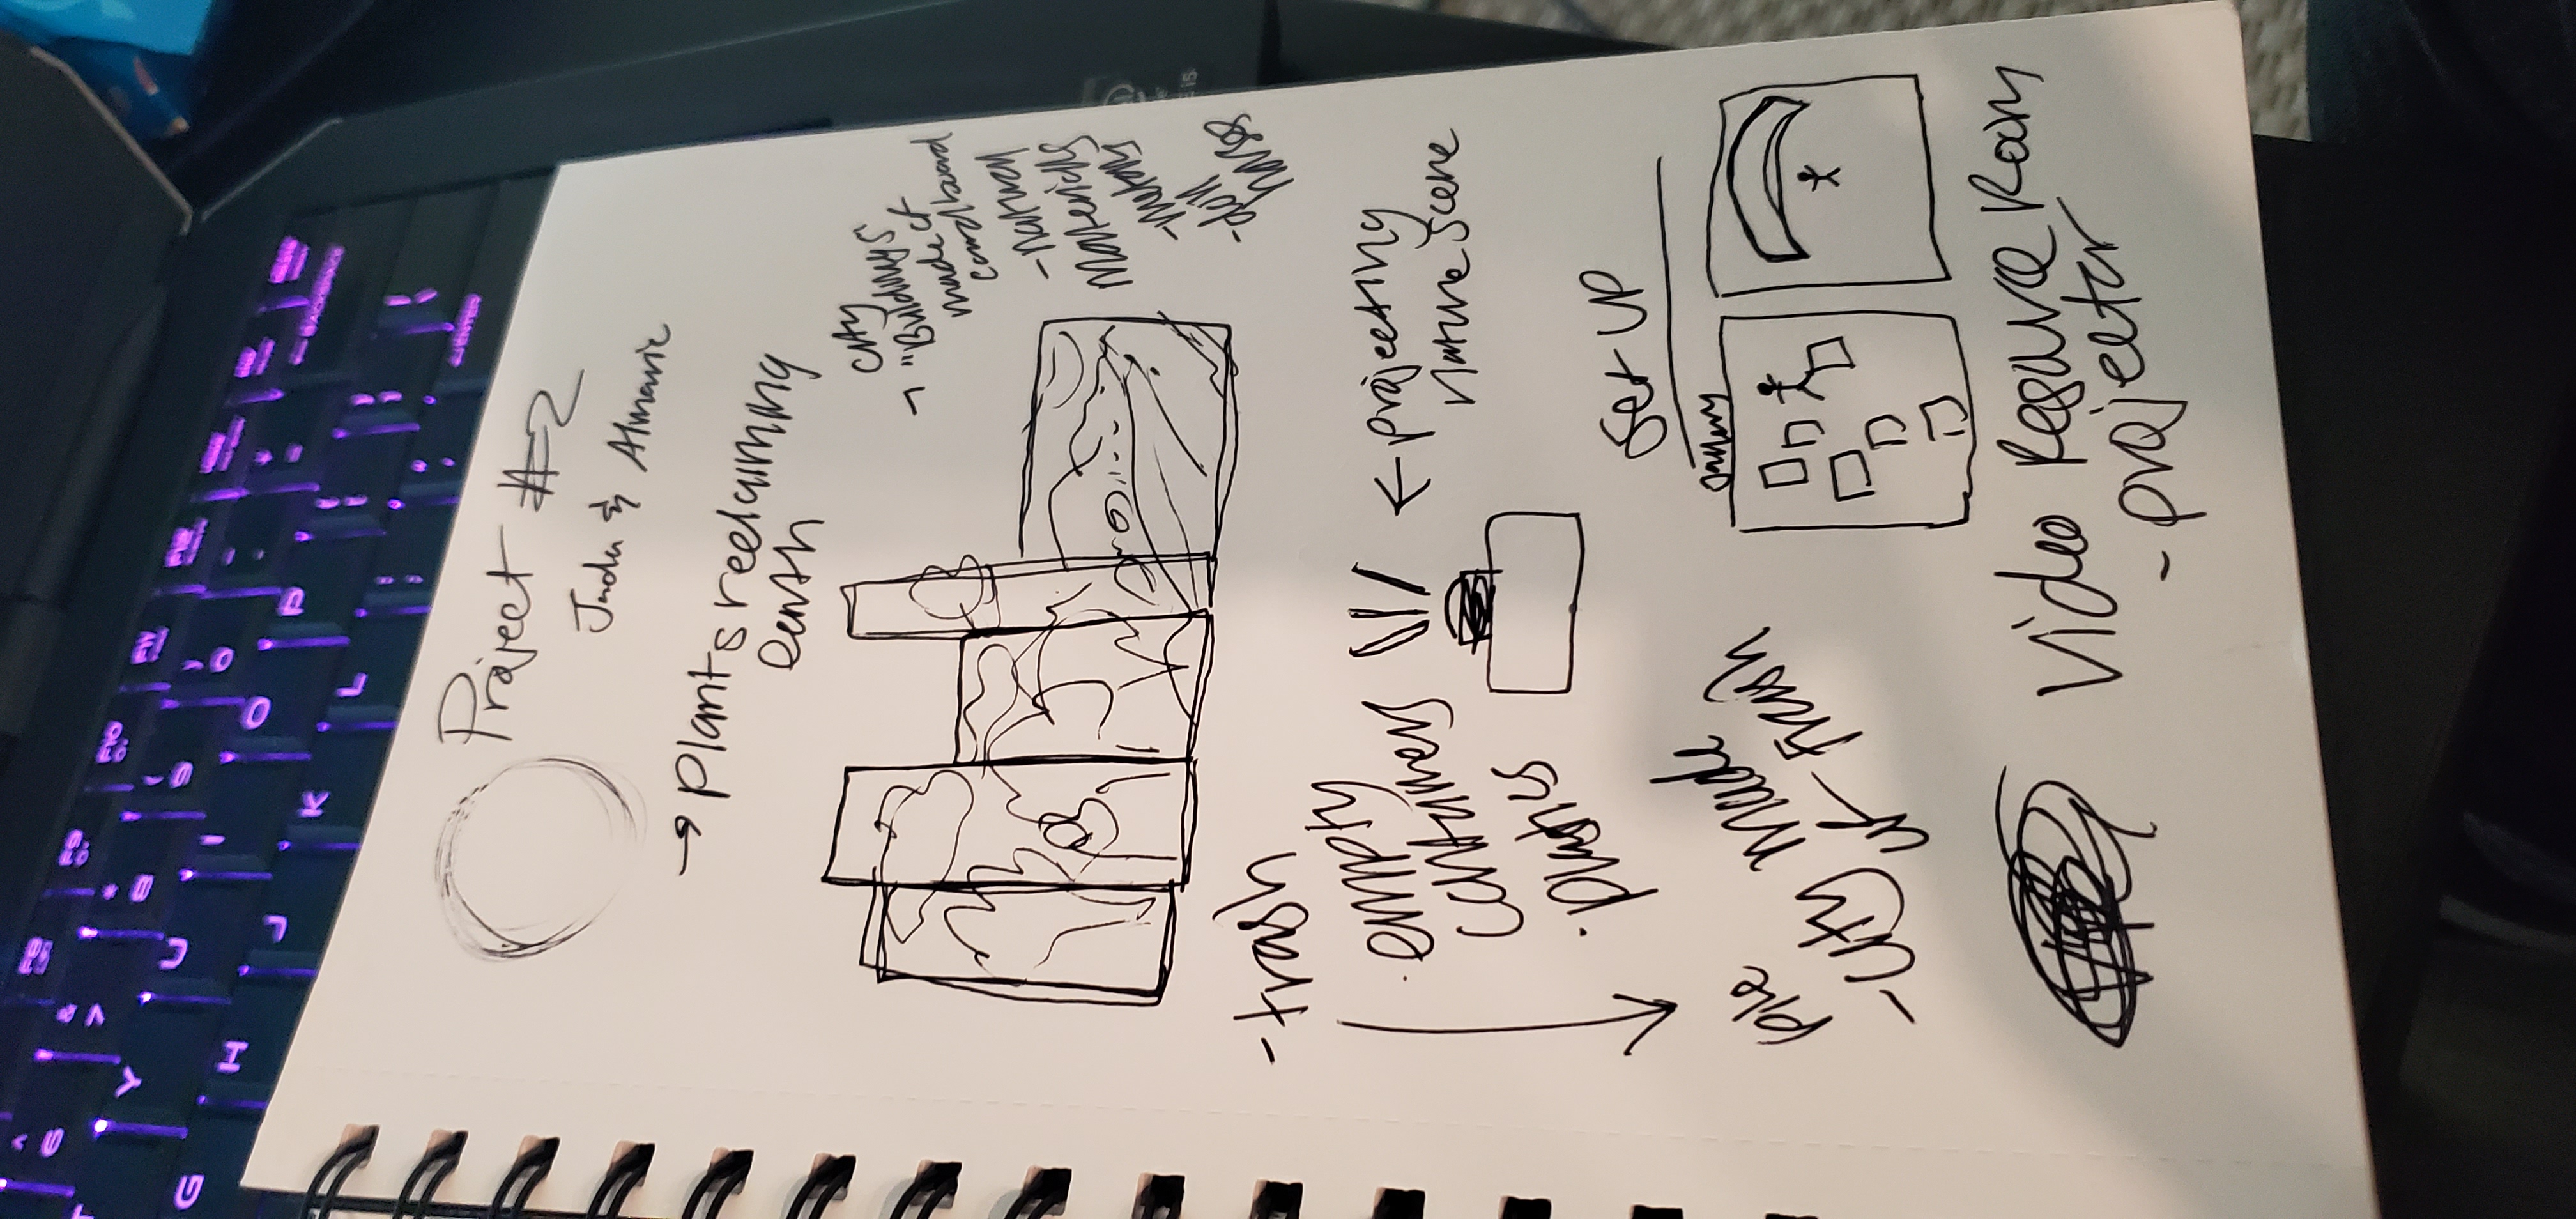 ^
6
&
7
*
8
(
9
)
0
-
F8
F9
F10
F11
F12
T
Y
U
I
O
P
{
[
}
]
+
=
← BACKSPACE
G
H
J
K
L
:
;
"
'
ENTER
Project #2
&
→ plants reclaiming
earth
City
"Buildings"
made of
cardboard
- natural
materials
- metals
- doll
houses
- trash
· empty
containers
· plastics
pile
- city made
of trash
← projecting
nature scene
Set UP
gallery
Video Resource Room
- projector